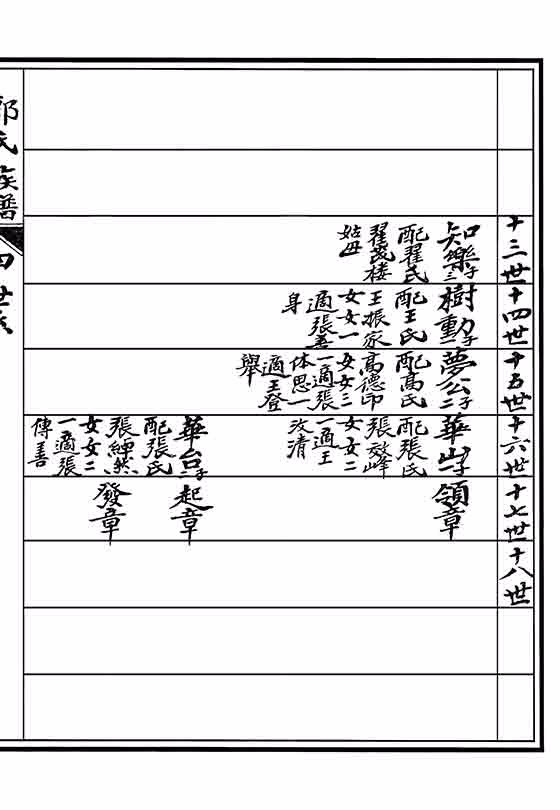 十三世
十四世
十五世
十六世
十七世
十八世
知樂子三
配翟氏
翟茂楼
姑母
樹勳子一
配王氏
王振家
女女一
適張善
身
夢公子二
配高氏
高德印
女女三
一適張
体思一
適王登
舉
華山子一
配張氏
張效峰
女女二
一適王
汝清
領章
華台子二
配張氏
張繩然
女女二
一適張
傳善
起章
發章
郭氏族譜
四世系